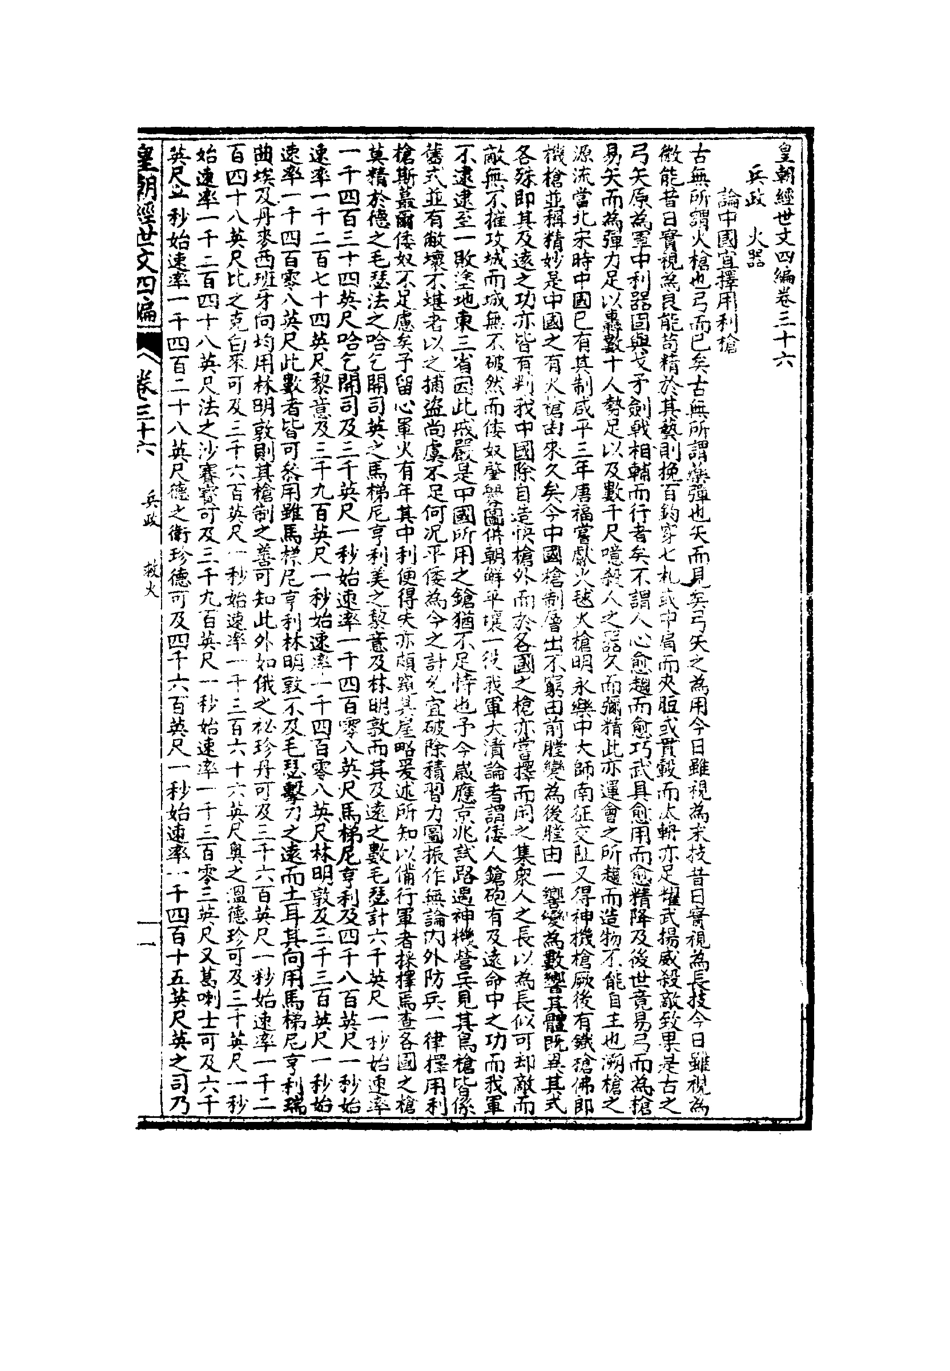 皇朝經世文四編卷三十六
兵政　火器
論中國宜擇用利槍
古無所謂火槍也弓而已矣古無所謂藥彈也矢而已矣弓矢之為用今日雖視為末技昔日實視為長技今日雖視為
微能昔日實視為良能苟精於其藝則挽百鈞穿七札或中肩而夾脰或貫轂而太輈亦足耀武揚威殺敵致果是古之
弓矢原為軍中利器固與戈矛劍戟相輔而行者矣不謂人心愈趨而愈巧武具愈用而愈精降及後世竟易弓而為槍
易矢而為彈力足以轟數十人勢足以及數千尺噫殺人之器久而彌精此亦運會之所趨而造物不能自主也溯槍之
源流當北宋時中國已有其制咸平三年唐福嘗獻火毬火槍明永樂中大師南征交趾又得神機槍厥後有鐵槍佛郎
機槍並稱精妙是中國之有火槍由來久矣今中國槍制層出不窮由前膛變為後膛由一響變為數響其體既異其式
各殊即其及遠之功亦皆有判我中國除自造快槍外而於各國之槍亦嘗擇而用之集眾人之長以為長似可却敵而
敵無不摧攻城而城無不破然而倭奴肇釁圖併朝鮮平壤一役我軍大潰論者謂倭人鎗砲有及遠命中之功而我軍
不逮遂至一敗塗地東三省因此戒嚴是中國所用之鎗猶不足恃也予今歲應京兆試路過神機營兵見其鳥槍皆係
舊式並有敝壞不堪者以之捕盜尚虞不足何況平倭為今之計允宜破除積習力圖振作無論內外防兵一律擇用利
槍斯蕞爾倭奴不足慮矣予留心軍火有年其中利便得失亦頗窺其崖略爰述所知以備行軍者採擇焉查各國之槍
莫精於德之毛瑟法之哈乞開司英之馬梯尼亨利美之黎意及林明敦而其及遠之數毛瑟計六千英尺一秒始速率
一千四百三十四英尺哈乞開司及三千英尺一秒始速率一千四百零八英尺馬梯尼亨利及四千八百英尺一秒始
速率一千二百七十四英尺黎意及三千九百英尺一秒始速率一千四百零八英尺林明敦及三千三百英尺一秒始
速率一千四百零八英尺此數者皆可叅用雖馬梯尼亨利林明敦不及毛瑟擊力之遠而土耳其向用馬梯尼亨利瑞
典埃及丹麥西班牙向均用林明敦則其槍制之善可知此外如俄之袐珍丹可及三千六百英尺一秒始速率一千二
百四十八英尺比之克白來可及三千六百英尺一秒始速率一千三百六十六英尺奧之溫德珍可及三千英尺一秒
始速率一千二百四十八英尺法之沙賽寶可及三千九百英尺一秒始速率一千三百零三英尺又葛喇士可及六千
英尺一秒始速率一千四百二十八英尺德之衛珍德可及四千六百英尺一秒始速率一千四百十五英尺英之司乃
皇朝經世文四編　卷三十六　兵政　火　一